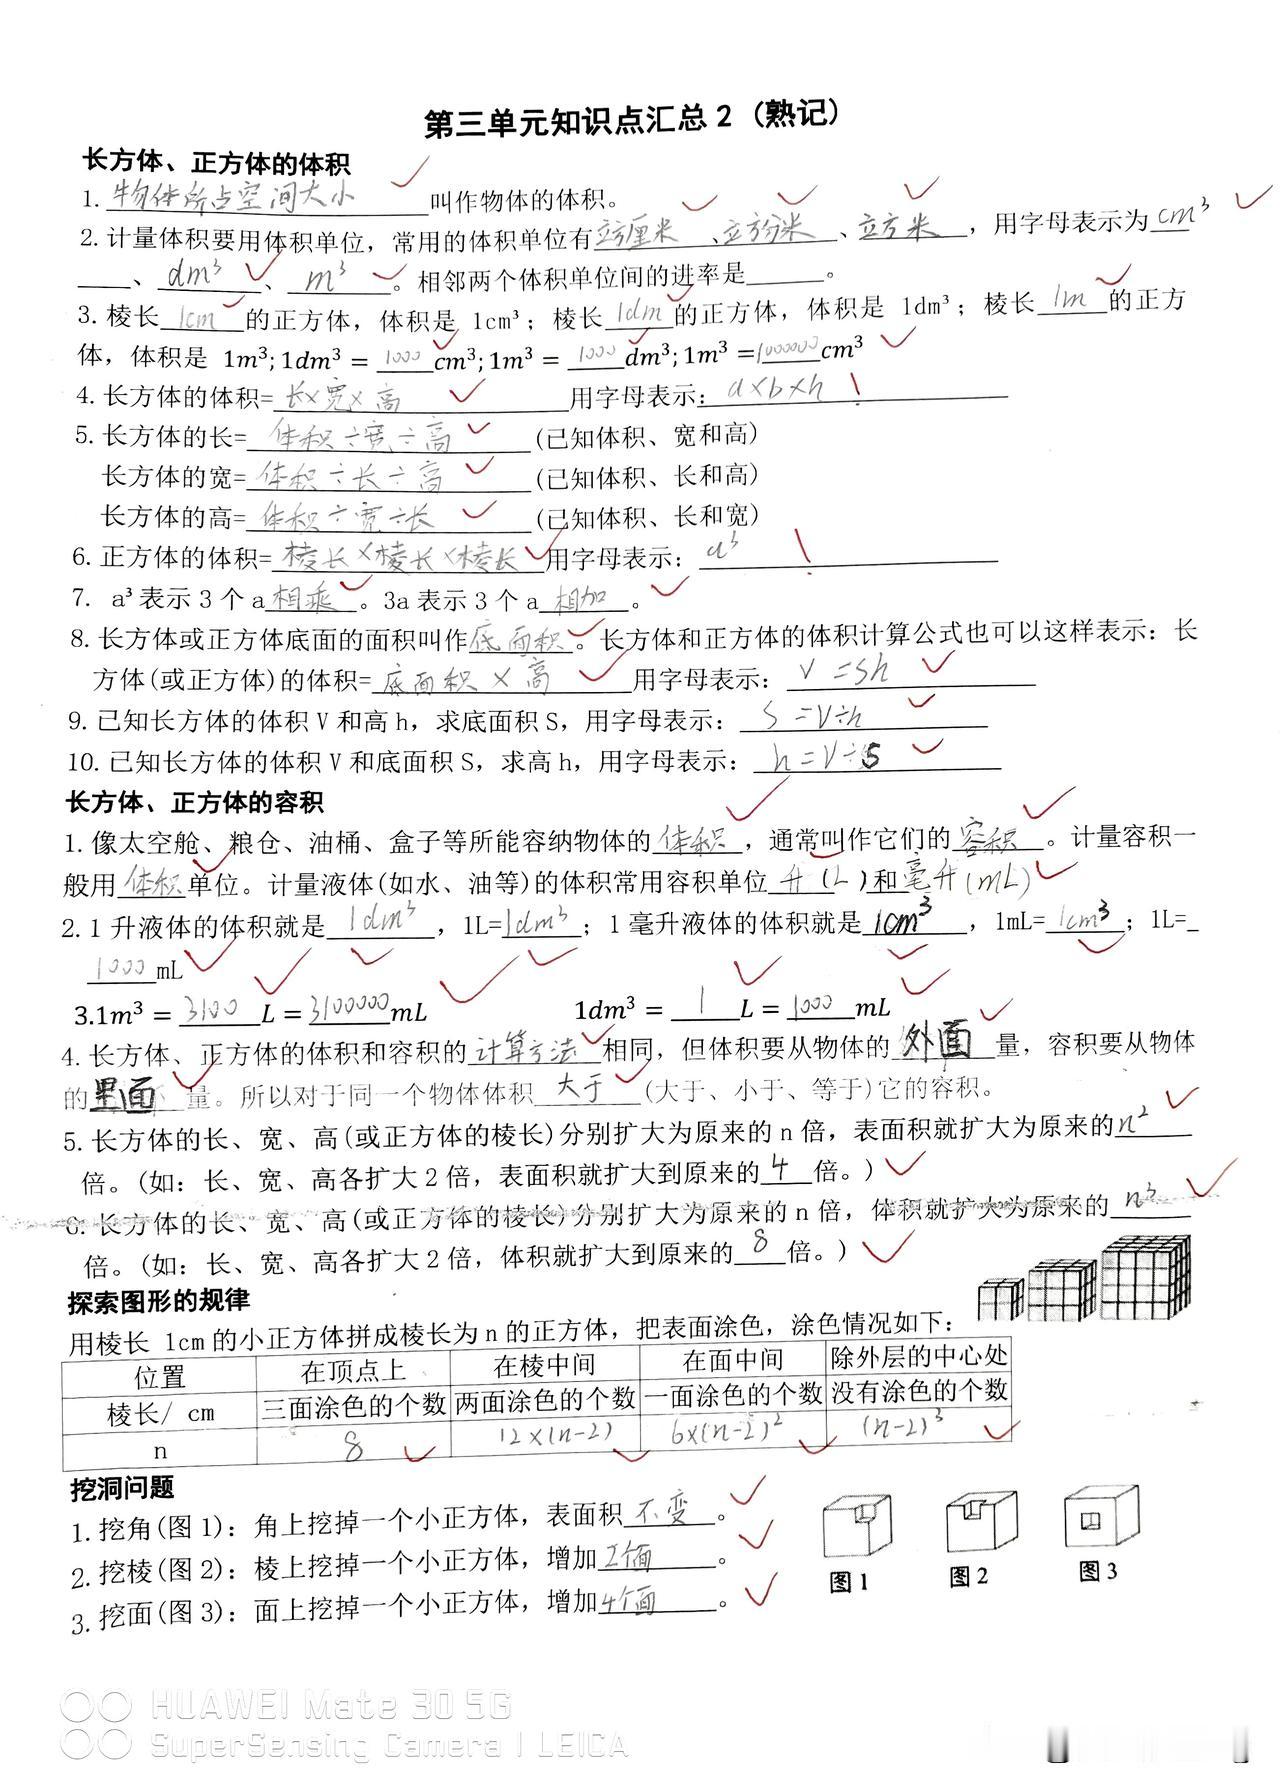 第三单元知识点汇总2（熟记）
长方体、正方体的体积
1. 物体所占空间大小 叫作物体的体积。
2. 计量体积要用体积单位，常用的体积单位有立方厘米、立方分米、立方米，用字母表示为cm³
、dm³、m³。相邻两个体积单位间的进率是______。
3. 棱长1cm的正方体，体积是 1cm³；棱长1dm的正方体，体积是 1dm³；棱长1m的正方
体，体积是 1m³；1dm³ = 1000 cm³；1m³ = 1000 dm³；1m³ = 1000000 cm³
4. 长方体的体积=长×宽×高 用字母表示：a×b×h
5. 长方体的长=体积÷宽÷高(已知体积、宽和高)
长方体的宽=体积÷长÷高(已知体积、长和高)
长方体的高=体积÷宽÷长(已知体积、长和宽)
6. 正方体的体积=棱长×棱长×棱长 用字母表示：a³
7. a³表示3个a相乘。3a表示3个a相加。
8. 长方体或正方体底面的面积叫作底面积。长方体和正方体的体积计算公式也可以这样表示：长
方体(或正方体)的体积=底面积×高 用字母表示：V=Sh
9. 已知长方体的体积V和高h，求底面积S，用字母表示：S=V÷h
10. 已知长方体的体积V和底面积S，求高h，用字母表示：h=V÷S
长方体、正方体的容积
1. 像太空舱、粮仓、油桶、盒子等所能容纳物体的体积，通常叫作它们的容积。计量容积一
般用体积单位。计量液体(如水、油等)的体积常用容积单位升(L)和毫升(mL)
2. 1升液体的体积就是1dm³，1L=1dm³；1毫升液体的体积就是1cm³，1mL=1cm³；1L=
1000mL
3.1m³ = 3100 L = 3100000 mL 1dm³ = 1 L = 1000 mL
4. 长方体、正方体的体积和容积的计算方法相同，但体积要从物体的外面量，容积要从物体
的里面量。所以对于同一个物体体积大于(大于、小于、等于)它的容积。
5. 长方体的长、宽、高(或正方体的棱长)分别扩大为原来的n倍，表面积就扩大为原来的n²
倍。(如：长、宽、高各扩大2倍，表面积就扩大到原来的4倍。)
6. 长方体的长、宽、高(或正方体的棱长)分别扩大为原来的n倍，体积就扩大为原来的n³
倍。(如：长、宽、高各扩大2倍，体积就扩大到原来的8倍。)
探索图形的规律
用棱长 1cm的小正方体拼成棱长为n的正方体，把表面涂色，涂色情况如下：
位置 在顶点上 在棱中间 在面中间 除外层的中心处
棱长/ cm 三面涂色的个数 两面涂色的个数 一面涂色的个数 没有涂色的个数
n 8 12×(n-2) 6×(n-2)² (n-2)³
挖洞问题
1. 挖角(图1)：角上挖掉一个小正方体，表面积不变。
2. 挖棱(图2)：棱上挖掉一个小正方体，增加2个面。
3. 挖面(图3)：面上挖掉一个小正方体，增加4个面。
图1 图2 图3
HUAWEI Mate 30 5G
SuperSensing Camera | LEICA